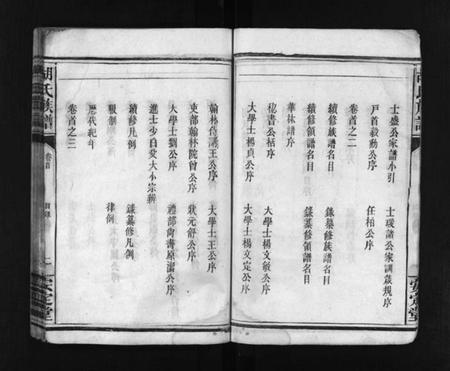 士盛公家譜小引
士璦諸公家訓族規序
戶首毅勳公序
任柏公序
卷首之二
續修族譜名目
錄纂修族譜名目
續修領譜名目
錄纂修領譜名目
華林譜序
秘書公祜序
大學士楊文敏公序
大學士楊貞公序
大學士楊文定公序
翰林侍講王公序
大學士王公序
吏部翰林院曾公序
狀元舒公序
大學士劉公序
禮部尚書原溜公序
進士少白愛大小宗辨
續修凡例
錄纂修凡例
服制
律例
歷代紀年
卷首之三
胡氏族譜
卷首
目錄
一
安定堂